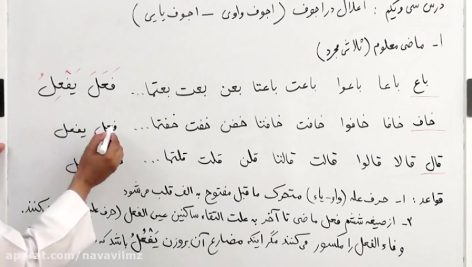 درس سی و یکم : اعلال در اجوف ( اجوف واوی – اجوف یایی )
۱- ماضی معلوم (ثلاثی مجرد)
باع باعا باعوا باعت باعتا بعن بعت بعتما ... فَعَلَ يَفْعِلُ
خاف خافا خافوا خافت خافتا خفن خفت خفتما ... فعل يفعل
قال قالا قالوا قالت قالتا قلن قلت قلتما ...
قواعد : ۱- حرف عله (واو-یاء) متحرک ما قبل مفتوح به الف قلب می‌شود
۲- از صیغه ششم فعل ماضی تا آخر به علت التقاء ساکنین عین الفعل (حرف عله) کنند.
و فاء الفعل را مکسور می‌کنند مگر اینکه مضارع آن بر وزن يَفْعُلُ باشد که
aparat.com/navavilmz